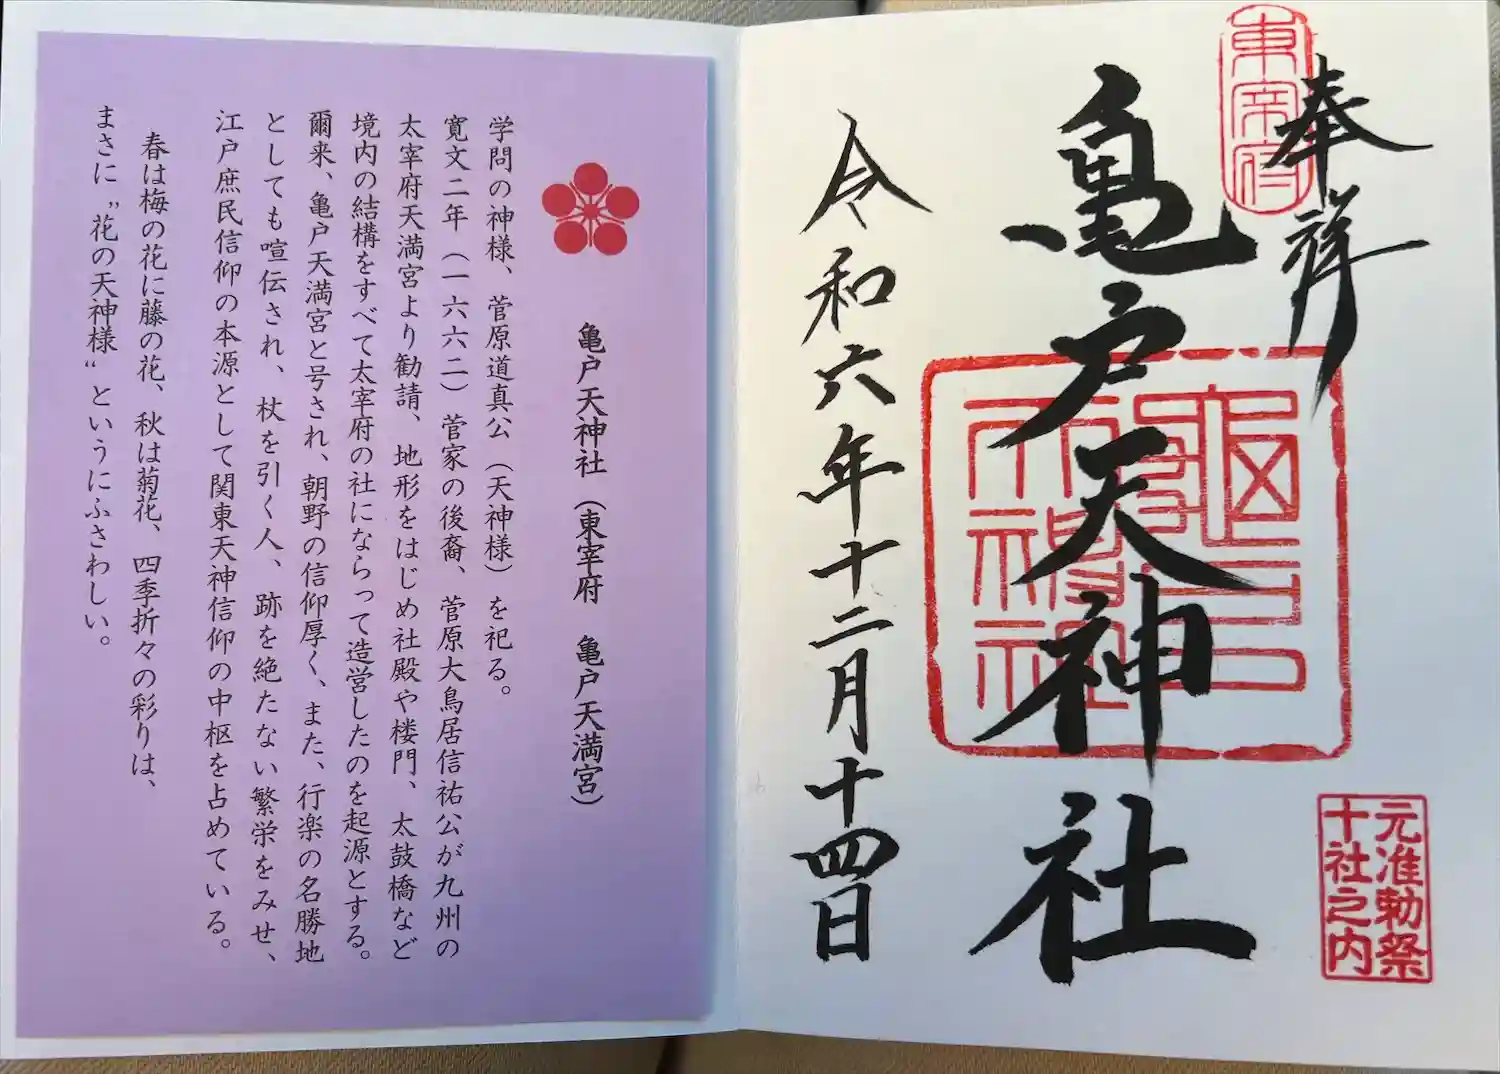 奉祥
東宰府
亀戸天神社
亀戸天神社
元准勅祭
十社之内
令和六年十二月十四日
亀戸天神社（東宰府　亀戸天満宮）
学問の神様、菅原道真公（天神様）を祀る。
寛文二年（一六六二）菅家の後裔、菅原大鳥居信祐公が九州の
太宰府天満宮より勧請、地形をはじめ社殿や楼門、太鼓橋など
境内の結構をすべて太宰府の社にならって造営したのを起源とする。
爾来、亀戸天満宮と号され、朝野の信仰厚く、また、行楽の名勝地
としても喧伝され、杖を引く人、跡を絶たない繁栄をみせ、
江戸庶民信仰の本源として関東天神信仰の中枢を占めている。
春は梅の花に藤の花、秋は菊花、四季折々の彩りは、
まさに〝花の天神様〟というにふさわしい。